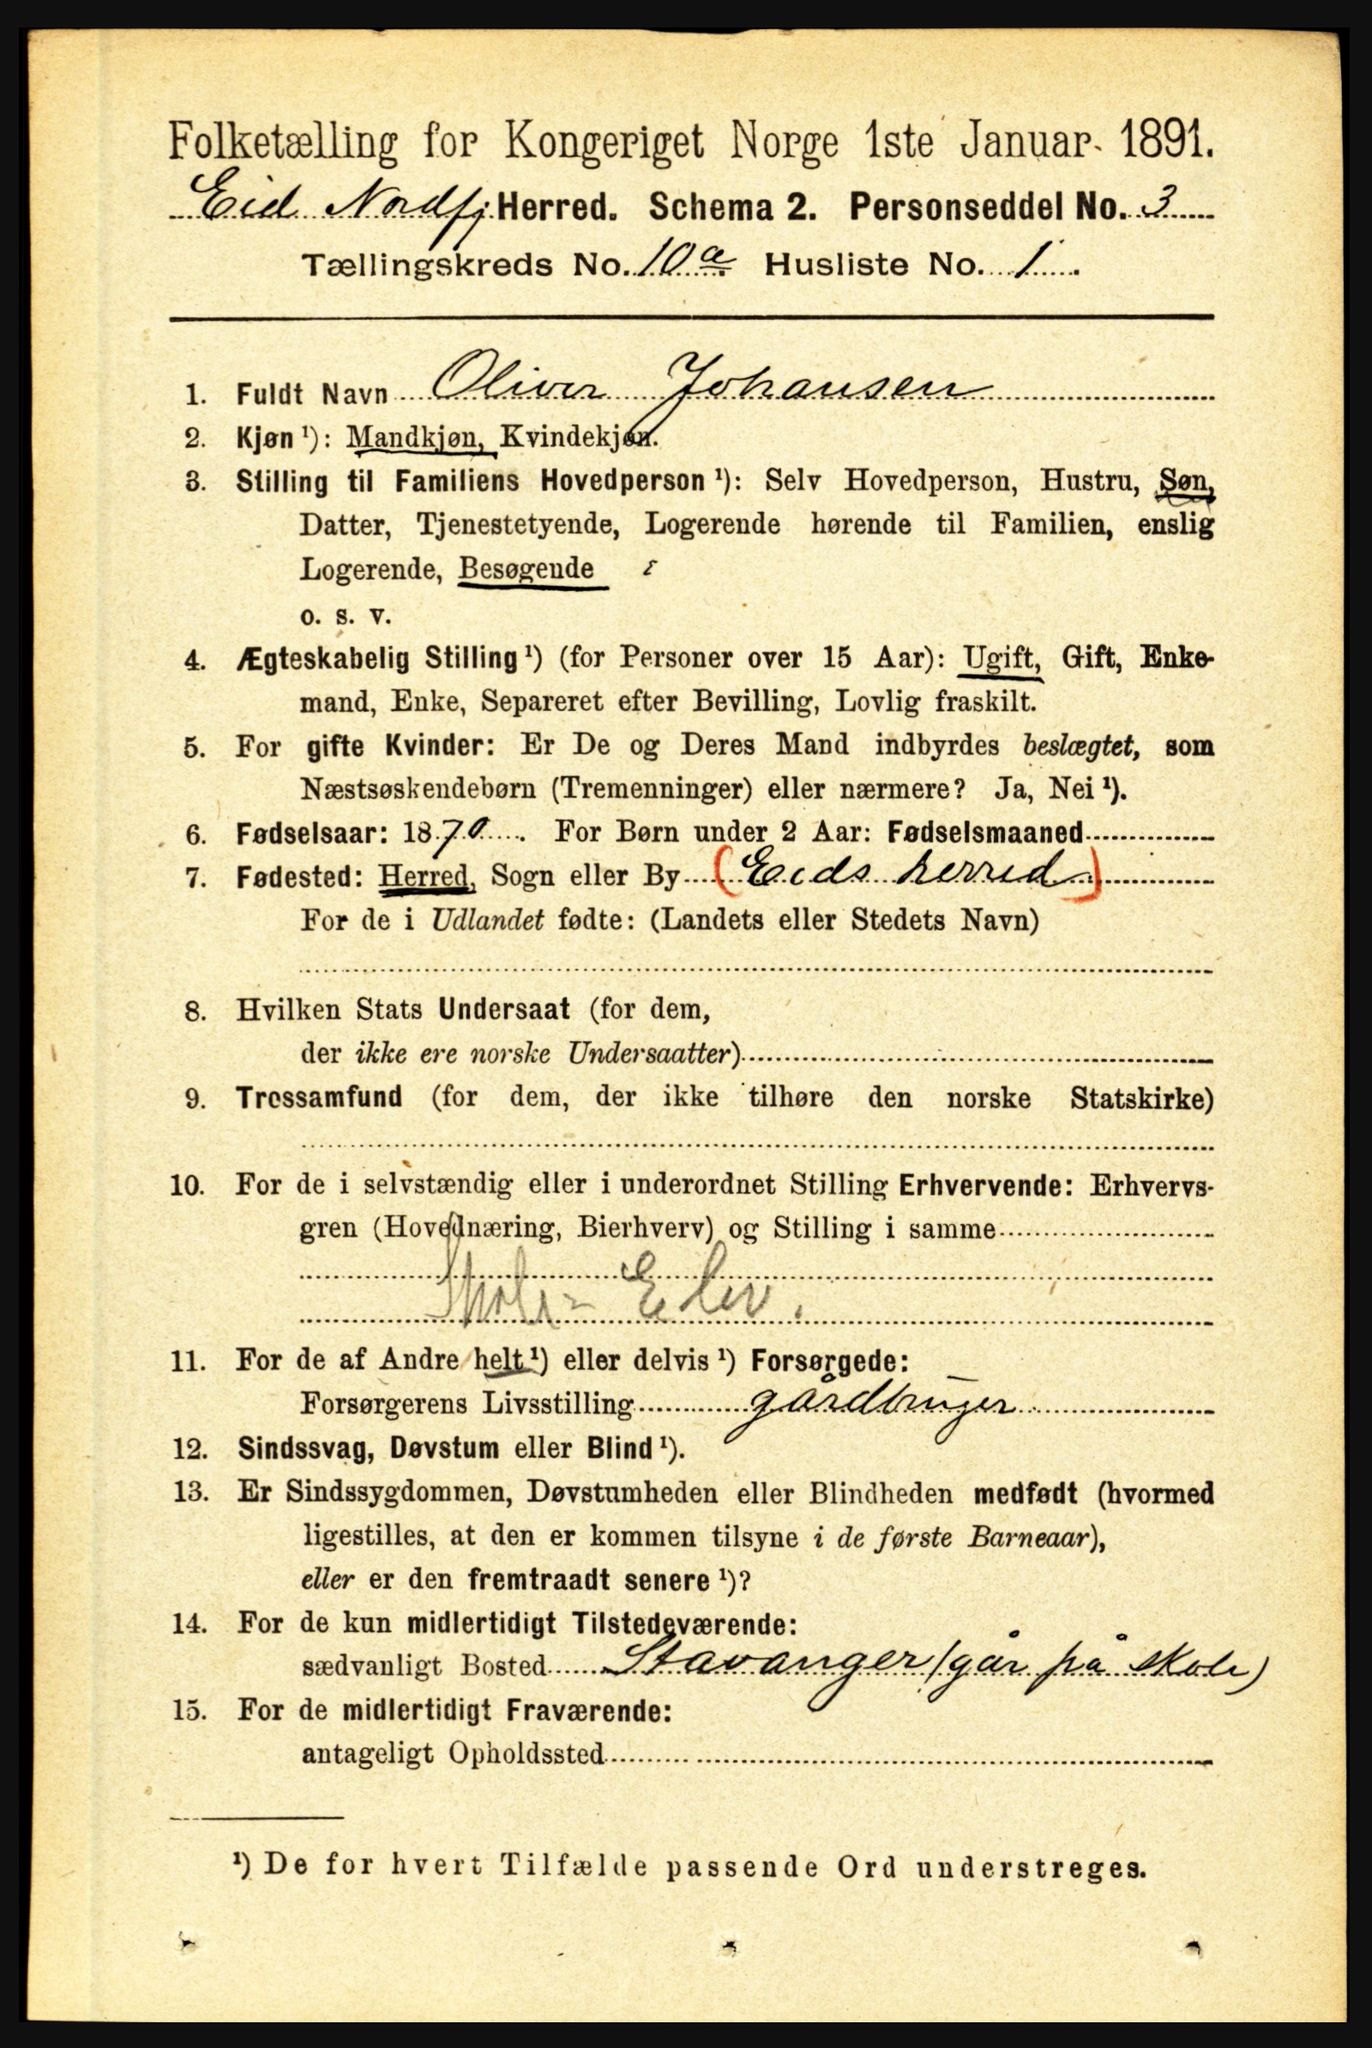 Folketælling for Kongeriget Norge 1ste Januar 1891.
Eid Nordfj. Herred. Schema 2. Personseddel No. 3
Tællingskreds No. 10 a Husliste No. 1
1. Fuldt Navn Oliver Johansen
2. Kjøn ¹): Mandkjøn, Kvindekjøn.
3. Stilling til Familiens Hovedperson ¹): Selv Hovedperson, Hustru, Søn,
Datter, Tjenestetyende, Logerende hørende til Familien, enslig
Logerende, Besøgende
o. s. v.
4. Ægteskabelig Stilling ¹) (for Personer over 15 Aar): Ugift, Gift, Enke-
mand, Enke, Separeret efter Bevilling, Lovlig fraskilt.
5. For gifte Kvinder: Er De og Deres Mand indbyrdes beslægtet, som
Næstsøskendebørn (Tremenninger) eller nærmere? Ja, Nei ¹).
6. Fødselsaar: 1870. For Børn under 2 Aar: Fødselsmaaned
7. Fødested: Herred, Sogn eller By (Eids herred)
For de i Udlandet fødte: (Landets eller Stedets Navn)
8. Hvilken Stats Undersaat (for dem,
der ikke ere norske Undersaatter)
9. Trossamfund (for dem, der ikke tilhøre den norske Statskirke)
10. For de i selvstændig eller i underordnet Stilling Erhvervende: Erhvervs-
gren (Hovednæring, Bierhverv) og Stilling i samme
Skole-Elev.
11. For de af Andre helt ¹) eller delvis ¹) Forsørgede:
Forsørgerens Livsstilling gårdbruger
12. Sindssvag, Døvstum eller Blind ¹).
13. Er Sindssygdommen, Døvstumheden eller Blindheden medfødt (hvormed
ligestilles, at den er kommen tilsyne i de første Barneaar),
eller er den fremtraadt senere ¹)?
14. For de kun midlertidigt Tilstedeværende:
sædvanligt Bosted Stavanger (går på skole)
15. For de midlertidigt Fraværende:
antageligt Opholdssted
¹) De for hvert Tilfælde passende Ord understreges.